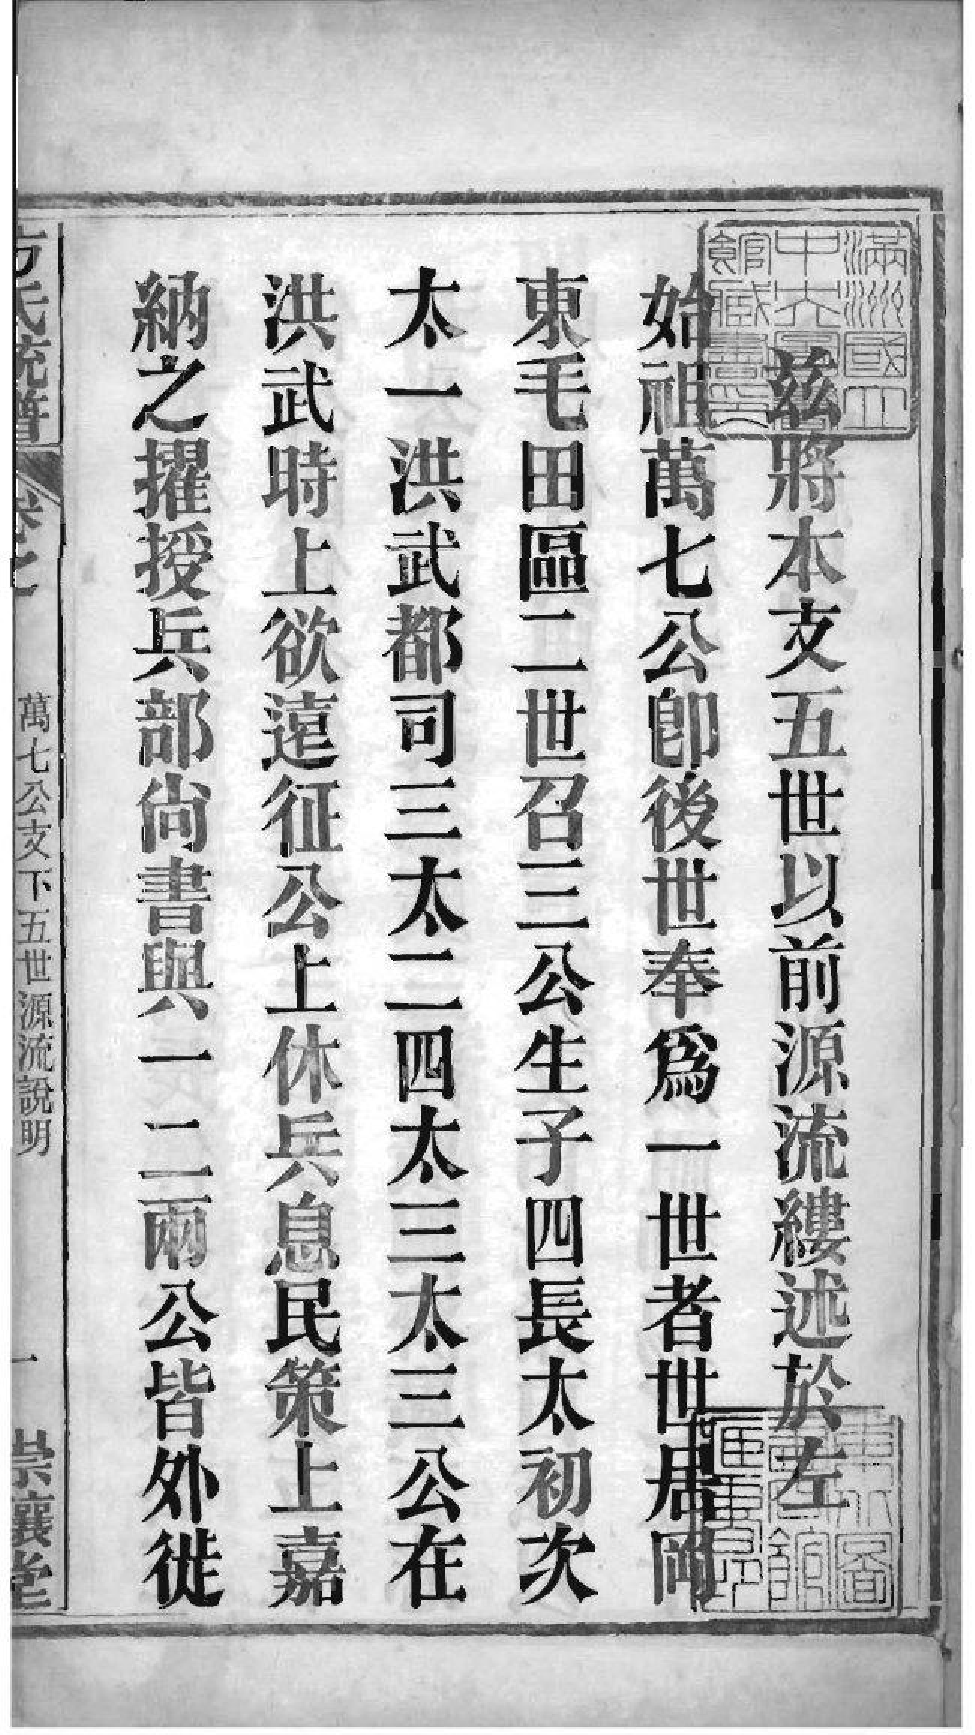 茲將本支五世以前源流縷述於左
始祖萬七公卽後世奉爲一世者世居岡
東毛田區二世召三公生子四長太初次
太一洪武都司三太二四太三太三公在
洪武時上欲遠征公上休兵息民策上嘉
納之擢授兵部尙書與一二兩公皆外徙
方氏統譜 卷之
萬七公支下五世源流說明
一
崇讓堂
滿洲國立
中央圖書
館藏書印